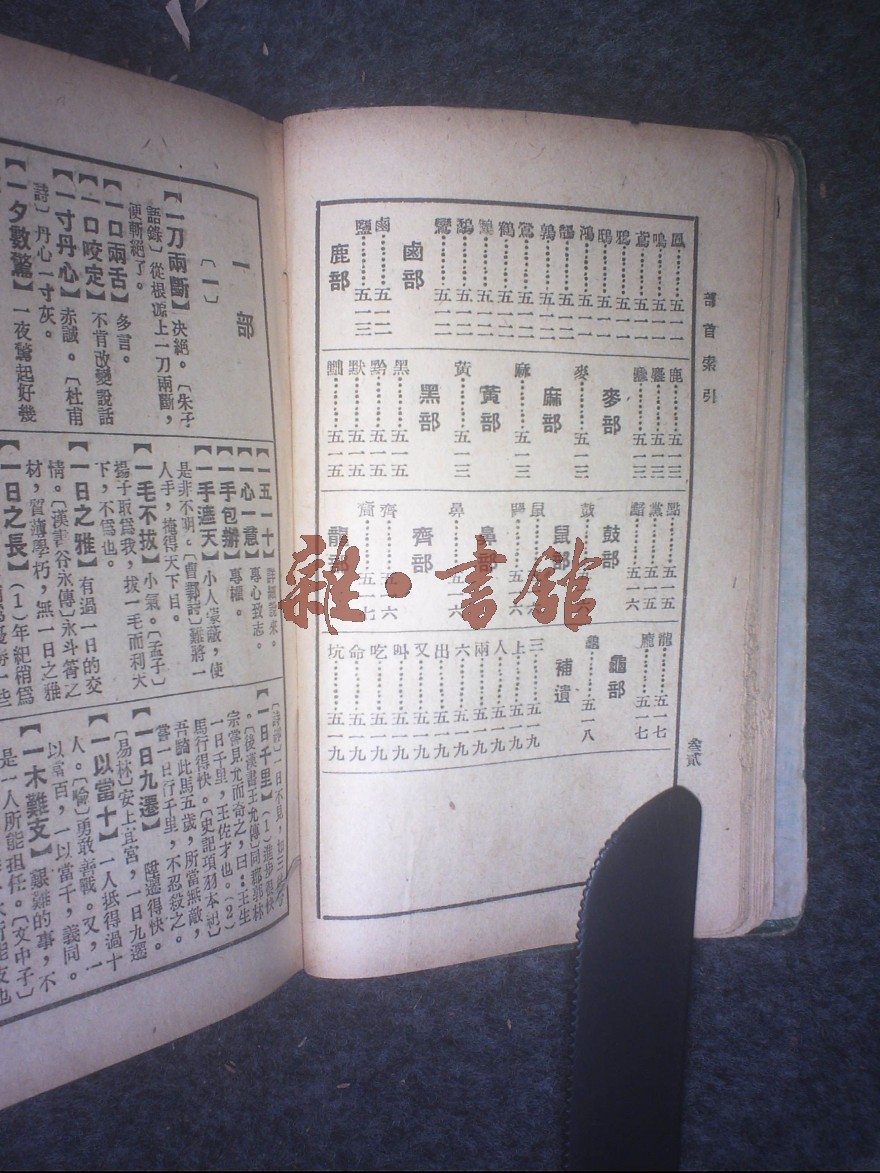 部首索引
叁貳
鳳……五一一
鳴……五一一
鳶……五一一
鴉……五一一
鴟……五一一
鴻……五一二
鶉……五一二
鶯……五一二
鶴……五一二
鸞……五一二
鹵部
鹵……五一二
鹽……五一三
鹿部
鹿……五一三
五一三
五一三
麥部
麥……五一三
麻部
麻……五一三
黃部
黃……五一三
黑部
黑……五一五
黔……五一五
默……五一五
黜……五一五
點……五一五
黨……五一五
鼓部
鼓……五一六
鼠部
鼠……五一六
鼻部
鼻……五一六
齊部
齊……五一六
齋……五一七
龍部
龍……五一七
龐……五一七
龜部
龜……五一八
補遺
三……五一九
上……五一九
人……五一九
兩……五一九
六……五一九
出……五一九
又……五一九
叫……五一九
吃……五一九
命……五一九
坑……五一九
一部
〔一〕
【一刀兩斷】決絕。〔朱子
語錄〕從根源上一刀兩斷，
便斬絕了。
【一口兩舌】多言。
【一口咬定】不肯改變說話
【一寸丹心】赤誠。〔杜甫
詩〕丹心一寸灰。
【一夕數驚】一夜驚起好幾
【一五一十】詳細說來。
【一心一意】專心致志。
【一手包辦】專權。
【一手遮天】小人蒙蔽，使
是非不明。〔曹鄴詩〕難將一
人手，掩得天下目。
【一毛不拔】小氣。〔孟子〕
揚子取爲我，拔一毛而利天
下，不爲也。
【一日之雅】有過一日的交
情。〔漢書谷永傳〕永斗筲之
材，質薄學朽，無一日之雅
【一日之長】（1）年紀稍爲
〔詩經〕一日不見，如三
【一日千里】（1）進步很快
。〔後漢書王允傳〕同郡郭林
宗嘗見允而奇之，曰：王生
一日千里，王佐才也。（2）
馬行得快。〔史記項羽本紀〕
吾騎此馬五歲，所當無敵，
嘗一日行千里，不忍殺之。
【一日九遷】陞遷得快。
〔易林〕安上宜官，一日九遷
【一以當十】一人抵得過十
人。〔喻〕勇敢善戰。又，一
以當百，一以當千，義同。
【一木難支】艱難的事，不
是一人所能担任。〔文中子〕
雜·書館